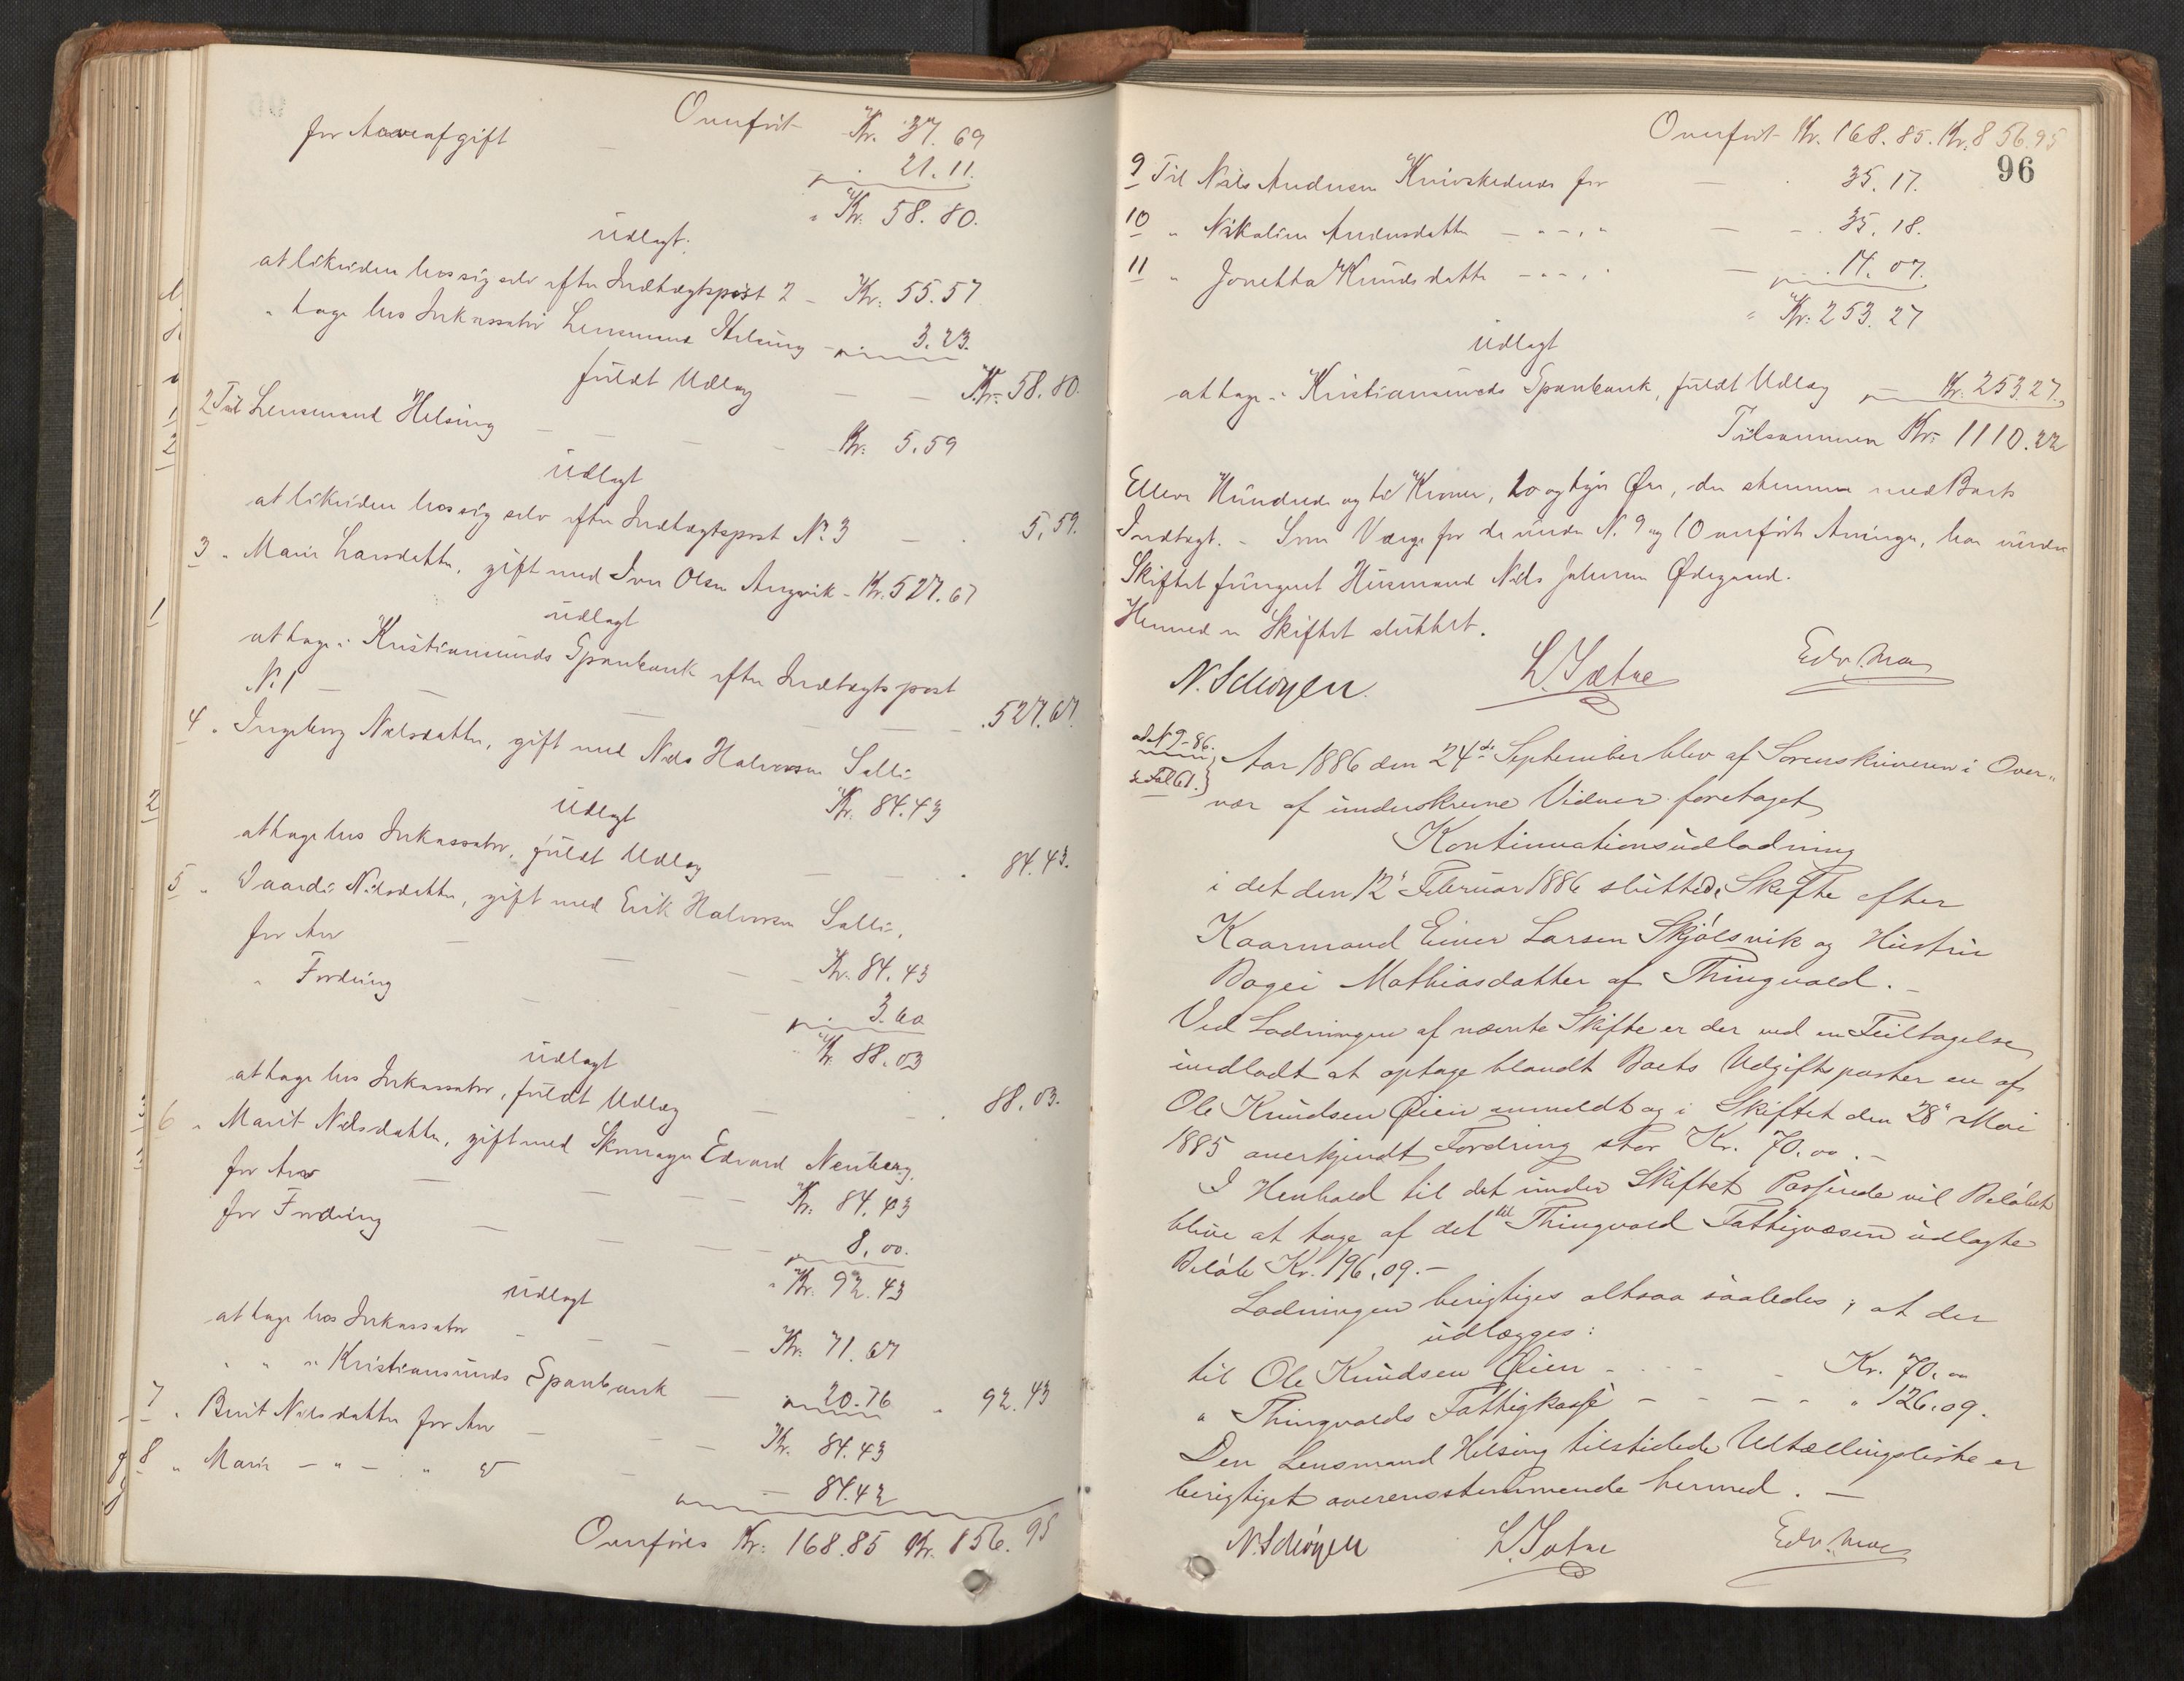 Overført Kr. 37.69
for Arveafgift — " 21.11.
" Kr. 58.80.
Udlagt:
at likvidere hos sig selv efter Indtægtspost 2 – Kr. 55.57
" tage hos Inkassator Lensmand Helsing – " 3.23.
fuldt Udlæg — — Kr. 58.80.
2 Til Lensmand Helsing — — — Kr. 5.59
Udlagt
at likvidere hos sig selv efter Indtægtspost No 3 — . 5.59.
3 " Marie Larsdatter, gift med Iver Olsen Angvik – Kr. 527.67
udlagt
at tage i Kristiansunds Sparebank efter Indtægtspost
N. 1 — — — — — . 527.67.
4 " Ingeborg Nilsdatter, gift med Nils Halvorsen Salli
Kr. 84.43
Udlagt
at tage hos Inkassator, fuldt Udlæg — — — . 84.43.
5 " Nilsdatter, gift med Erik Halvorsen Salli,
for Arv — — — Kr. 84.43
" Fordring — — " 3.60
" Kr. 88.03
udlagt
at tage hos Inkassator, fuldt Udlæg — — . 88.03.
6 " Marit Nilsdatter, gift med Skomager Edvard Neuberg,
for Arv — — — Kr. 84.43
for Fordring — — — " 8.00.
" Kr. 92.43
udlagt
at tage hos Inkassator — — — Kr. 71.67
" " " Kristiansunds Sparebank — " 20.76 " 92.43
7 " Berit Nilsdatter for Arv — — Kr. 84.43
8 " Marie – " – " — — 84.42
Overføres Kr. 168.85 Kr. 856.95
Overført Kr. 168.85. Kr. 856.95
96
9 Til Nils Andersen for — . 35.17.
10 " Nikoline Andersdatter – " – " — – . 35.18.
11 " Jonetta Knudsdatter – " – " — " 14.07.
" Kr. 253.27
udlagt
at tage i Kristiansunds Sparebank, fuldt Udlæg — Kr. 253.27.
Tilsammen Kr. 1110.22
Elleve Hundrede og ti Kroner, to og tyve Øre, der stemmer med Boets
Indtægt. – Som Værge for de under N. 9 og 10 anførte Arvinger, har under
Skiftet fungeret Husmand Nils Johnsen Ødegaard.
Hermed er Skiftet sluttet.
N. Schøyen. L. Sætre Edv. Moe
ad N 9–86.
se Fol 61.
Aar 1886 den 24de September blev af Sorenskriveren i Over-
vær af underskrevne Vidner foretaget
Kontinuationsudlodning
i det den 12' Februar 1886 sluttede Skifte efter
Kaarmand Einer Larsen Skjølsvik og Hustru
Bagei Mathiasdatter af Thingvold. –
Ved Lodningen af nævnte Skifte er der ved en Feiltagelse
undladt at optage blandt Boets Udgiftsposter en af
Ole Knudsen Øien anmeldt og i Skiftet den 28' Mai
1885 anerkjendt Fordring stor Kr. 70.00. –
I Henhold til det under Skiftet Passerede vil Beløbet
blive at tage af det til Thingvold Fattigvæsen udlagte
Beløb Kr. 196.09. –
Lodningen berigtiges altsaa saaledes, at der
udlægges:
til Ole Knudsen Øien – – – – Kr. 70.00
" Thingvolds Fattigkasse – – – – " 126.09.
Den Lensmand Helsing tilstillede Udtællingsliste er
berigtiget overensstemmende hermed. –
N. Schøyen L. Sætre Edv. Moe